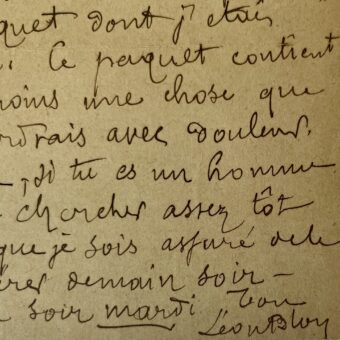 quet dont j'étais
. Ce paquet contient
moins une chose que
rdrais avec douleur.
, si tu es un homme
chercher assez tôt
que je sois assuré de le
érer demain soir –
soir mardi. Ton
Léon Bloy